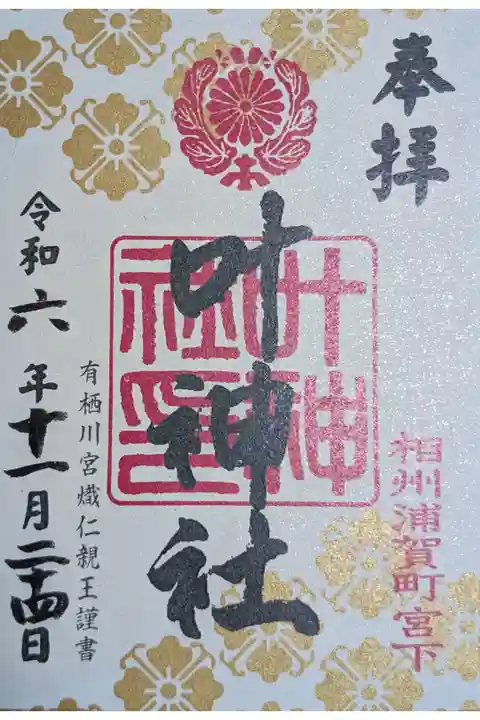 奉拝
相州浦賀町宮下
叶神社
叶神社印
有栖川宮熾仁親王謹書
令和六年十一月二十四日